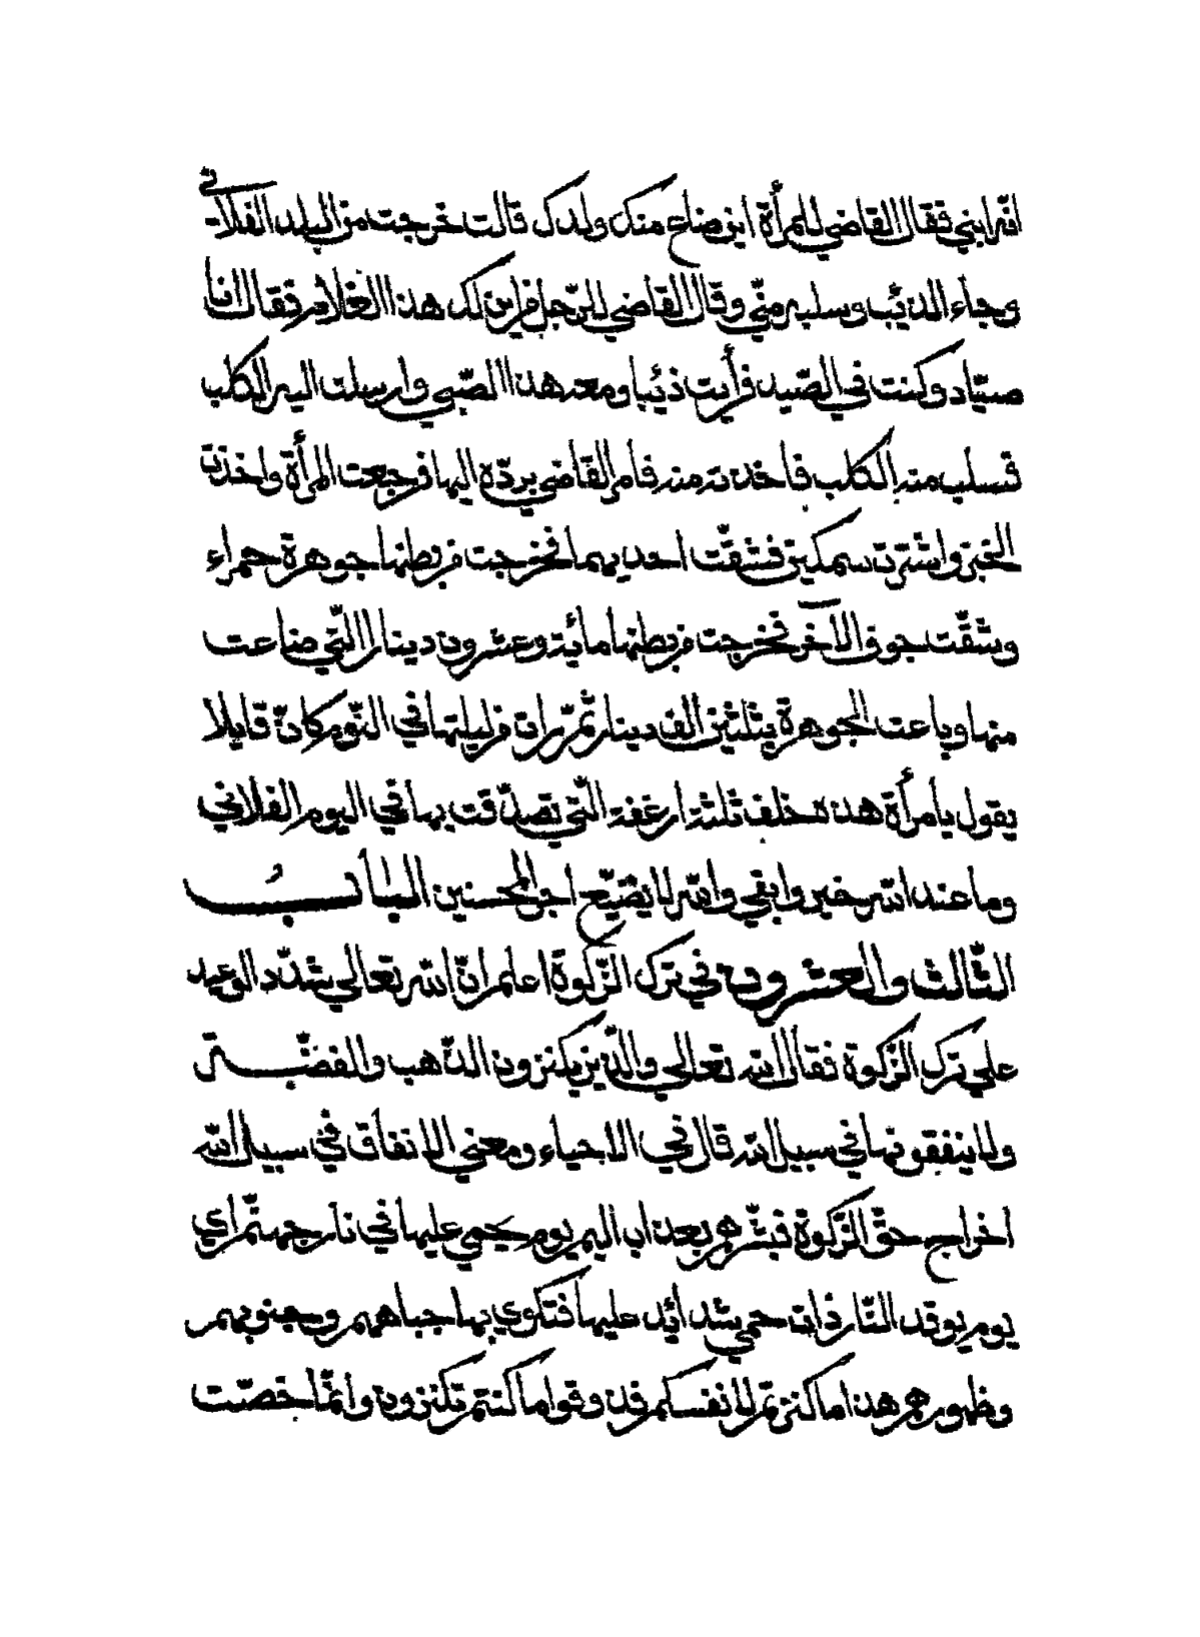 انّه ابني فقال القاضي للمرأة اين ضاع منك ولدك قالت خرجت من البلد الفلاني
وجاء الذئب وسلبه منّي وقال القاضي للرّجل من اين لك هذا الغلام فقال انا
صيّاد وكنت في الصّيد فرأيت ذئبا ومعه هذا الصّبي وارسلت اليه الكلب
فسلب منه الكلب فاخذته منه فامر القاضي بردّه اليها فرجعت المرأة واخذت
الخبز واشترت سمكين فشقّت احديهما فخرجت من بطنها جوهرة حمراء
وشقّت جوف الآخر فخرجت من بطنها مائة وعشرون دينارا الّتي ضاعت
منها وباعت الجوهرة بثلثين الف دينار ثمّ رات من ليلتها في النّوم كانّ قايلا
يقول يا مرأة هذه خلف ثلثة ارغفة الّتي تصدّقت بها في اليوم الفلاني
وما عند الله خير وابقي والله لا يضيّع اجر المحسنين البابُ
الثّالث والعشرون في ترك الزّكوة اعلم انّ الله تعالي شدّد الوعيد
علي ترك الزّكوة فقال الله تعالي والّذين يكنزون الذّهب والفضّة
ولا ينفقونها في سبيل الله قال في الاحياء ومعني الانفاق في سبيل الله
اخراج حقّ الزّكوة فبشّرهم بعذاب اليم يوم يحمي عليها في نار جهنّم اي
يوم يوقد النّار ذات حمي شدائد عليها فتكوي بها جباههم وجنوبهم
وظهورهم هذا ما كنزتم لانفسكم فذوقوا ما كنتم تكنزون وانّما خصّت